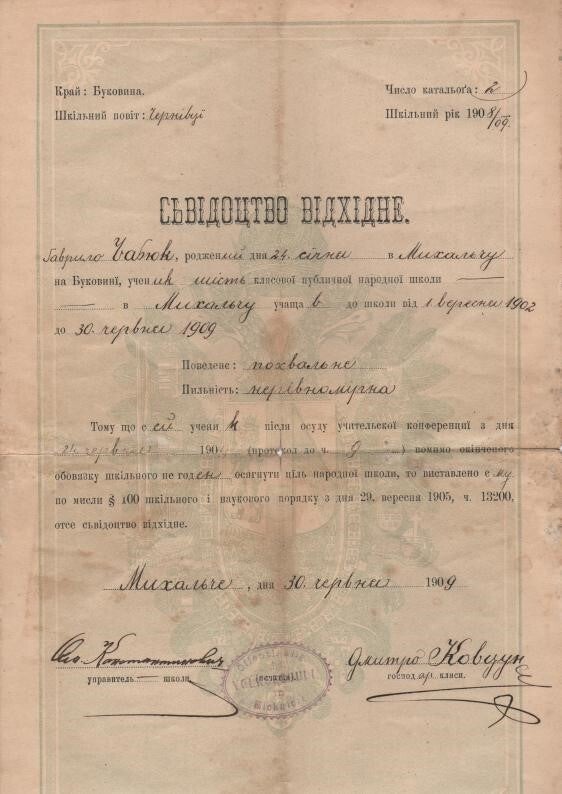 Край: Буковина.
Число катальоґа: 2
Шкільний повіт: Чернівці
Шкільний рік 1908/09.
СЬВІДОЦТВО ВІДХІДНЕ.
Гаврило Бабюк, роджений дня 24. січня в Михальчу
на Буковинї, ученик шість клясової публичної народної школи
в Михальчу учащав до школи від 1 вересня 1902
до 30. червня 1909
Поведенє: похвальне
Пильність:
Тому що сей ученик після осуду учительскої конференциї з дня
24. червня 190 (протокол до ч. 9) помимо окінченого
обовязку шкільного не годен осягнути цїль народної школи, то виставлено єму
по мисли § 100 шкільного і наукового порядку з дня 29. вересня 1905, ч. 13200,
отсе сьвідоцтво відхідне.
Михальче, дня 30. червня 1909
Константинович
Дмитро Ковцун
управитель школи.
(печатка)
господар кляси.